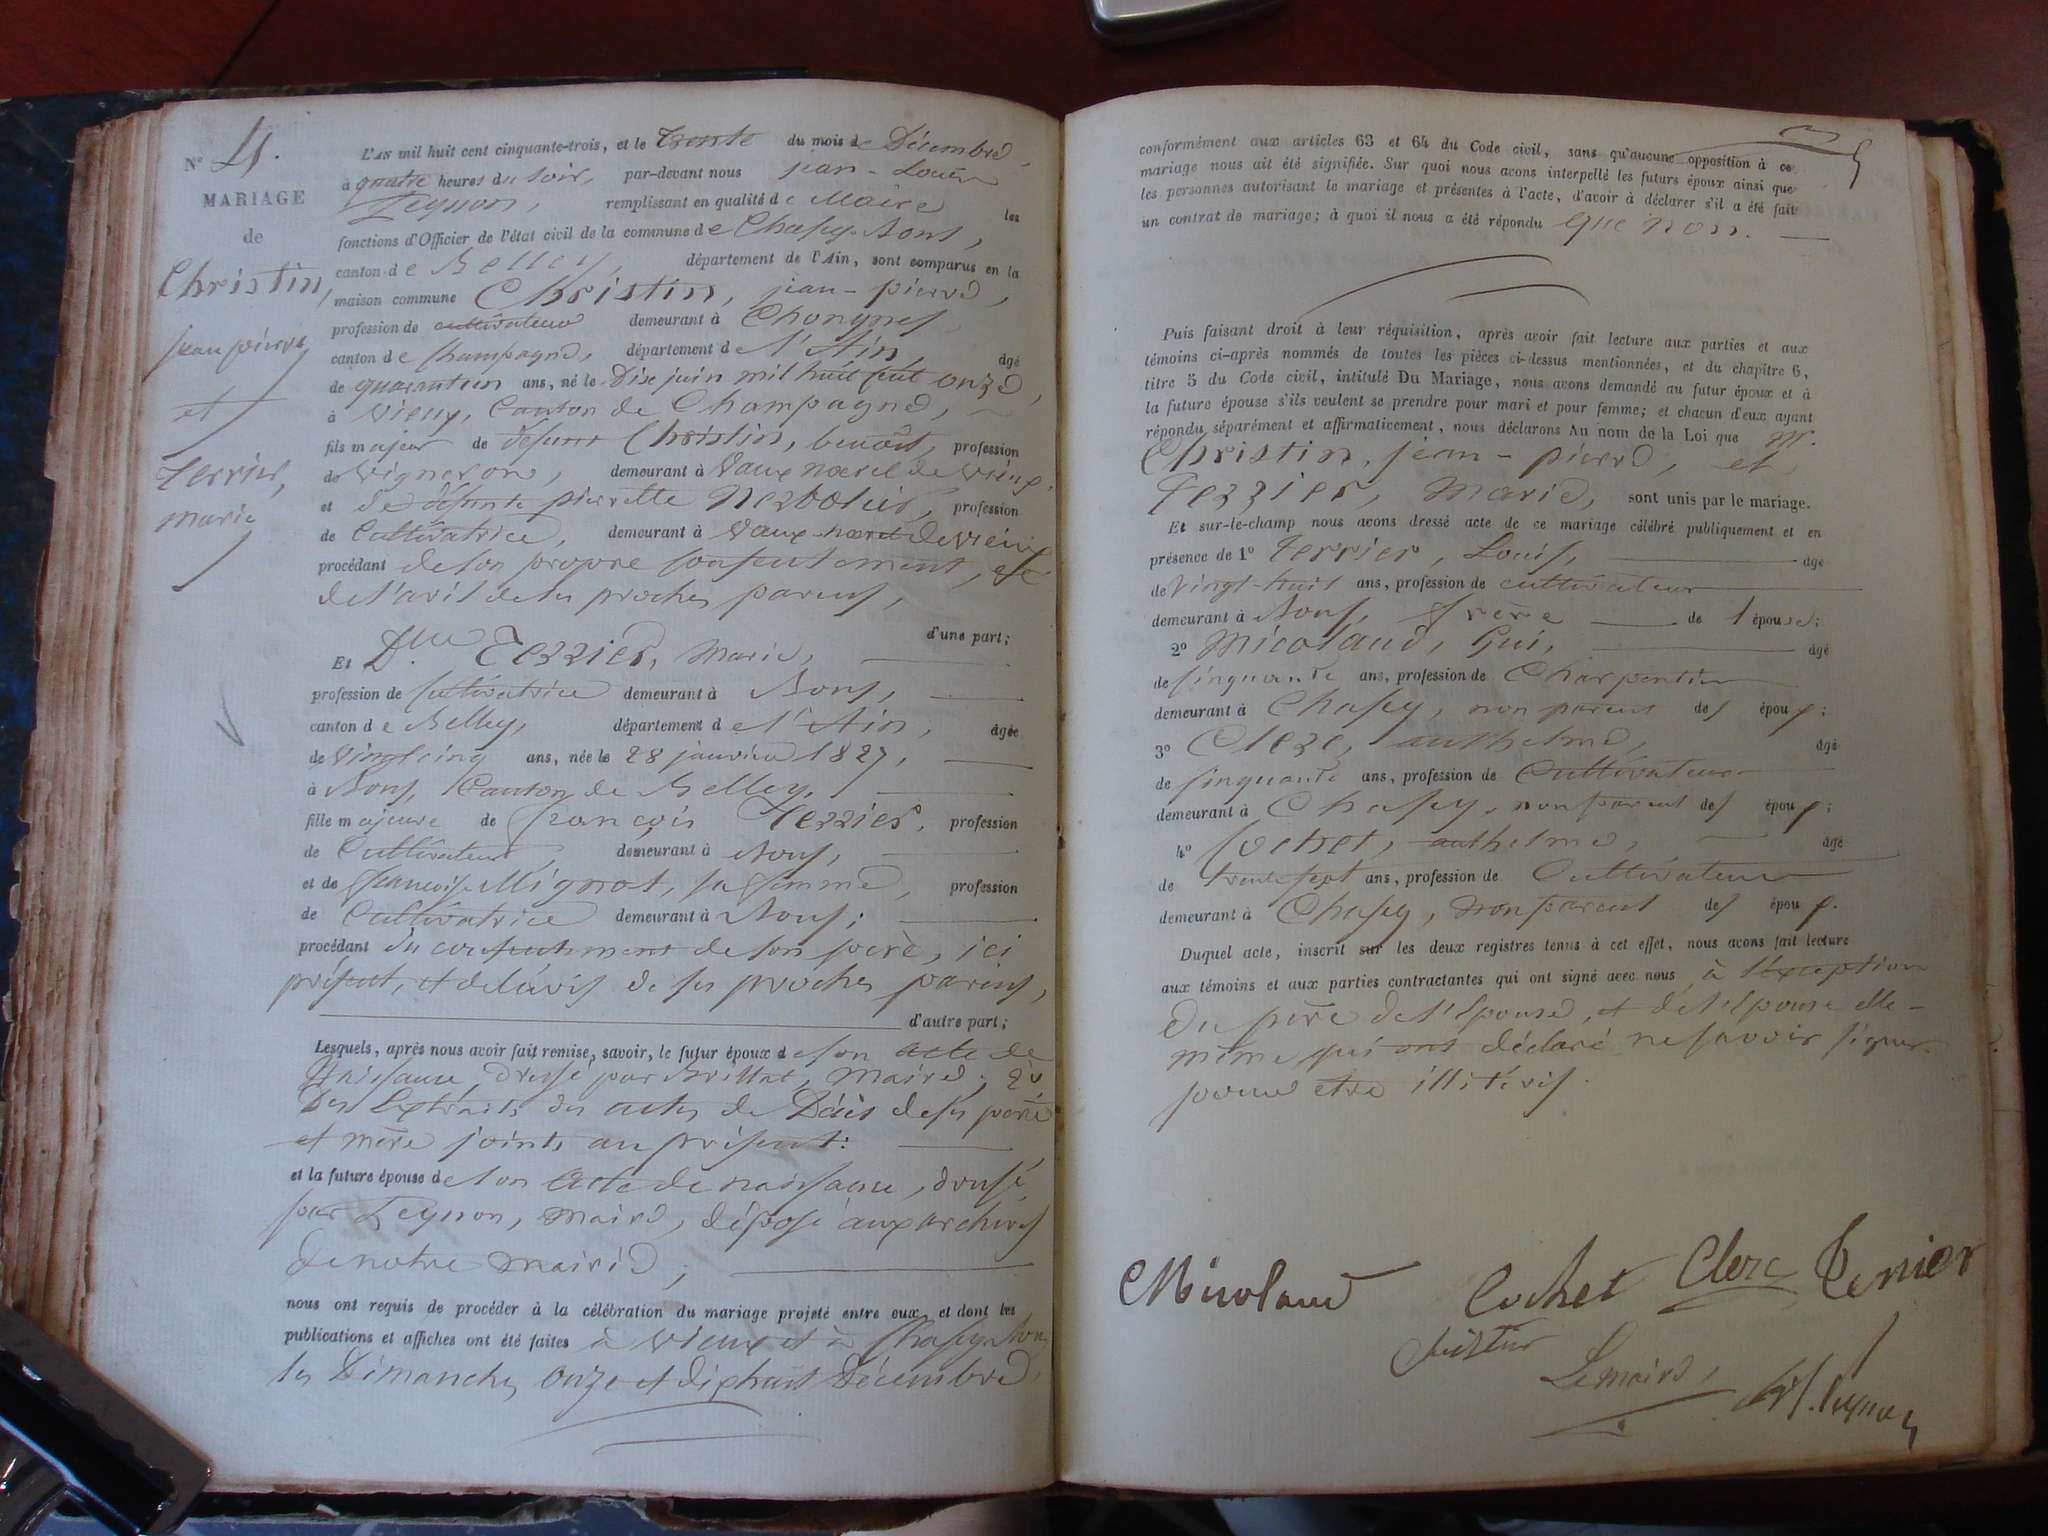 N° 4.
MARIAGE
de
Christin,
jean pierre
et
Terrier,
marie
L'AN mil huit cent cinquante-trois, et le trente du mois de Décembre,
à quatre heures du soir, par-devant nous jean-Louis
Peysson, remplissant en qualité de Maire les
fonctions d'Officier de l'état civil de la commune de Chasey-Bons,
canton de Belley, département de l'Ain, sont comparus en la
maison commune Christin, jean-pierre,
profession de cultivateur demeurant à Chongnes
canton de Champagne, département de l'Ain, âgé
de quarante un ans, né le Dix juin mil huit cent onze,
à Vieux, Canton de Champagne,
fils majeur de défunt Christin, benoît, profession
de Vigneron, demeurant à Vaux morel de Vieux
et de défunte pierrette profession
de Cultivatrice, demeurant à Vaux morel de Vieux
procédant de son propre consentement, et
de l'avis de ses proches parens,
d'une part;
Et Dlle Terrier, Marie,
profession de Cultivatrice demeurant à Bons,
canton de Belley, département de l'Ain, âgée
de Vingt cinq ans, née le 28 janvier 1827,
à Bons, Canton de Belley,
fille majeure de françois Terrier, profession
de Cultivateur, demeurant à Bons,
et de françoise Mignot, sa femme, profession
de Cultivatrice demeurant à Bons;
procédant du consentement de son père, ici
présent, et de l'avis de ses proches parens,
d'autre part;
Lesquels, après nous avoir fait remise, savoir, le futur époux de son acte de
Naissance, dressé par Brillat, maire; 2°
Des Extraits des actes de Décès de ses père
et mère joints au présent:
et la future épouse de son acte de naissance, dressé
par Peysson, maire, déposé aux archives
de notre mairie;
nous ont requis de procéder à la célébration du mariage projeté entre eux, et dont les
publications et affiches ont été faites à Vieux et à Chasey-Bons
les Dimanches onze et dix huit Décembre,
conformément aux articles 63 et 64 du Code civil, sans qu'aucune opposition à ce
mariage nous ait été signifiée. Sur quoi nous avons interpellé les futurs époux ainsi que
les personnes autorisant le mariage et présentes à l'acte, d'avoir à déclarer s'il a été fait
un contrat de mariage; à quoi il nous a été répondu que non.
Puis faisant droit à leur réquisition, après avoir fait lecture aux parties et aux
témoins ci-après nommés de toutes les pièces ci-dessus mentionnées, et du chapitre 6,
titre 5 du Code civil, intitulé Du Mariage, nous avons demandé au futur époux et à
la future épouse s'ils veulent se prendre pour mari et pour femme; et chacun d'eux ayant
répondu séparément et affirmativement, nous déclarons Au nom de la Loi que Mr.
Christin, jean-pierre, et
Terrier, Marie, sont unis par le mariage.
Et sur-le-champ nous avons dressé acte de ce mariage célébré publiquement et en
présence de 1° Terrier, Louis, âgé
de Vingt-huit ans, profession de cultivateur
demeurant à Bons, frère de l'épouse;
2° Micolaud, Gui, âgé
de Cinquante ans, profession de Charpentier
demeurant à Chasey, non parent des époux;
3° Clerc, anthelme, âgé
de Cinquante ans, profession de Cultivateur
demeurant à Chasey, non parent des époux;
4° Cochet, anthelme, âgé
de trente sept ans, profession de Cultivateur
demeurant à Chasey, non parent des époux.
Duquel acte, inscrit sur les deux registres tenus à cet effet, nous avons fait lecture
aux témoins et aux parties contractantes qui ont signé avec nous à l'exception
du père de l'Epouse, et de l'Epouse elle-
même qui ont déclaré ne savoir signer
pour être illitérés.
Micolaud Cochet Clerc Terrier
Christin
Le maire,